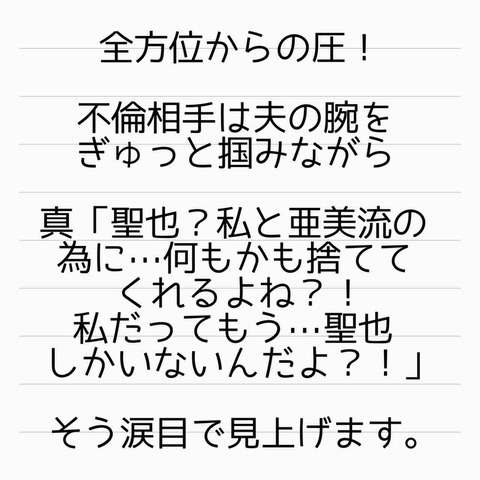 全方位からの圧！
不倫相手は夫の腕を
ぎゅっと掴みながら
真「聖也？私と亜美流の
為に…何もかも捨てて
くれるよね？！
私だってもう…聖也
しかいないんだよ？！」
そう涙目で見上げます。